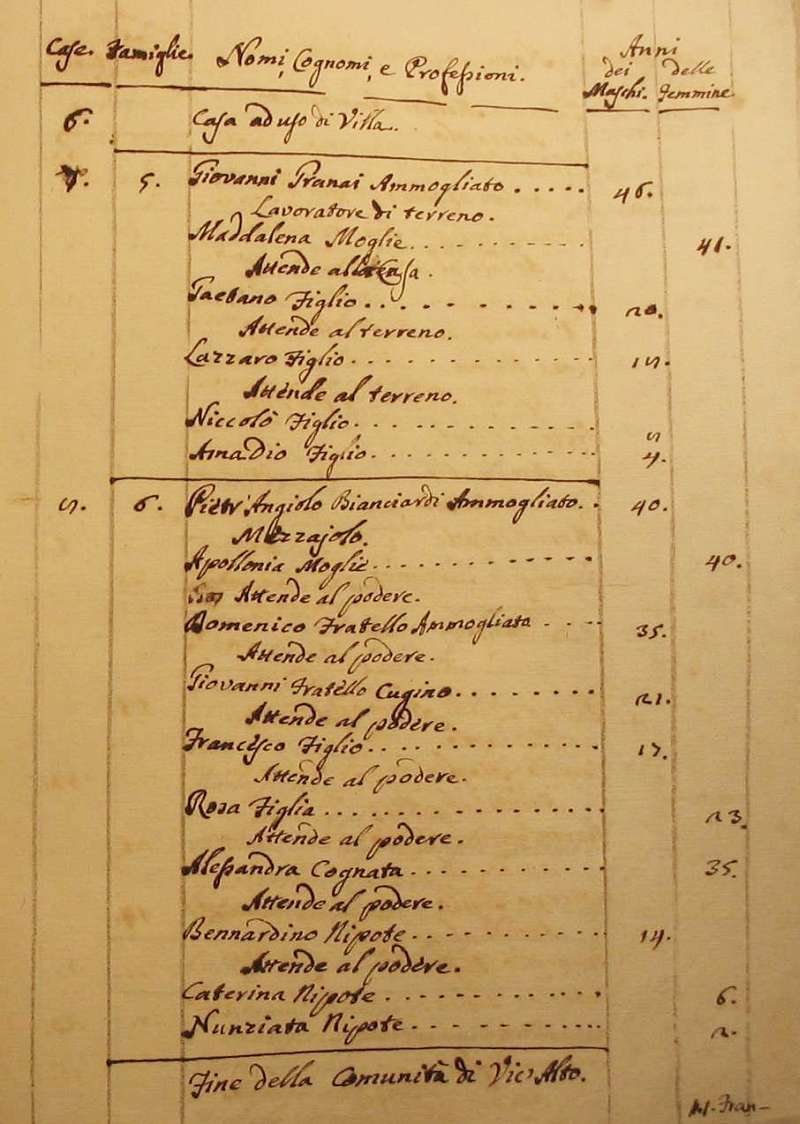 Case. Famiglie. Nomi, Cognomi, e Professioni. Anni
dei delle
Maschi. Femmine
6. Casa ad uso di Villa.
7. 5. Giovanni Pranai Ammogliato ..... 46.
Lavoratore di terreno.
Maddalena Moglie .......... 41.
Attende alla Casa.
Gaetano Figlio .......... 20.
Attende al terreno.
Lazzaro Figlio .......... 15.
Attende al terreno.
Niccolò Figlio .......... 5
Amadio Figlio .......... 4.
6. Pietr'Angiolo Bianciardi Ammogliato. . 40.
Mezzajolo.
Apollonia Moglie .......... 40.
Attende al podere.
Domenico Fratello Ammogliato .... 35.
Attende al podere.
Giovanni Fratello Cugino ........ 21.
Attende al podere.
Francesco Figlio .......... 17.
Attende al podere.
Rosa Figlia .......... 23.
Attende al podere.
Alessandra Cognata .......... 35.
Attende al podere.
Bennardino Nipote .......... 14.
Attende al podere.
Caterina Nipote .......... 6.
Nunziata Nipote .......... 2.
Fine della Comunità di Vic'Alto.